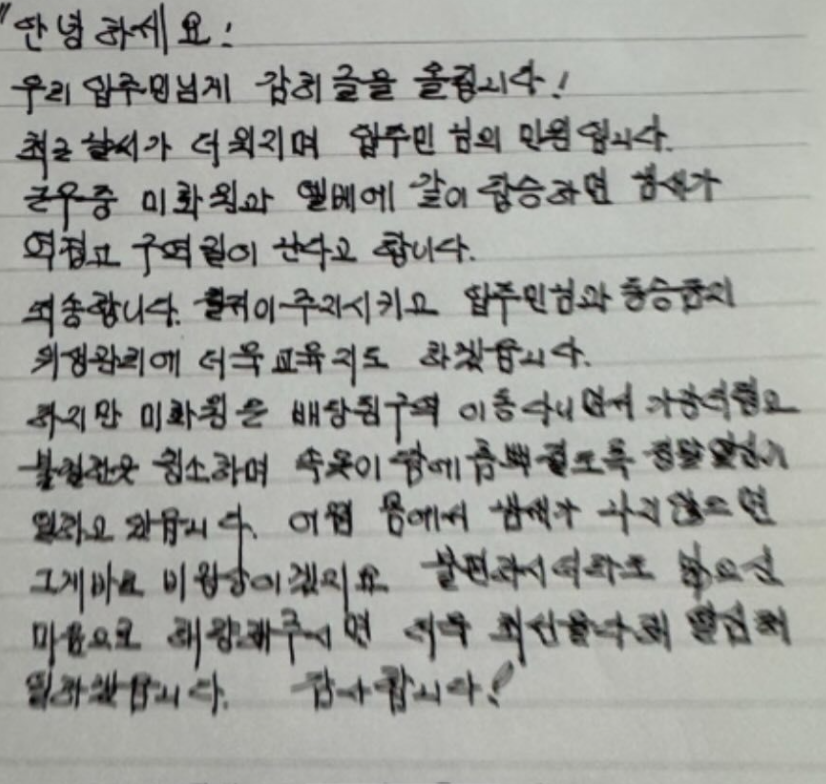 "안녕하세요!
우리 입주민님게 감히 글을 올립니다!
최근 날씨가 더워지며 입주민 님의 민원입니다.
근무중 미화원과 엘베에 같이 탑승하면 땀냄새가
역겹고 구역질이 난다고 합니다.
죄송합니다. 철저이 주지시키고 입주민님과 동승금지
위생관리에 더욱 교육지도 하겠습니다.
하지만 미화원은 배당된구역 이동 다니면서
불결한곳 청소하며 속옷이 땀에 흠뻑 젖도록 정말 열심히
일하고 있습니다. 어찌 몸에서 땀내가 나지 않으면
그게바로 비정상이겠지요 불편하시더라도 넓으신
마음으로 해량해주시면 더욱 최선을다해 열심히
일하겠습니다. 감사합니다!